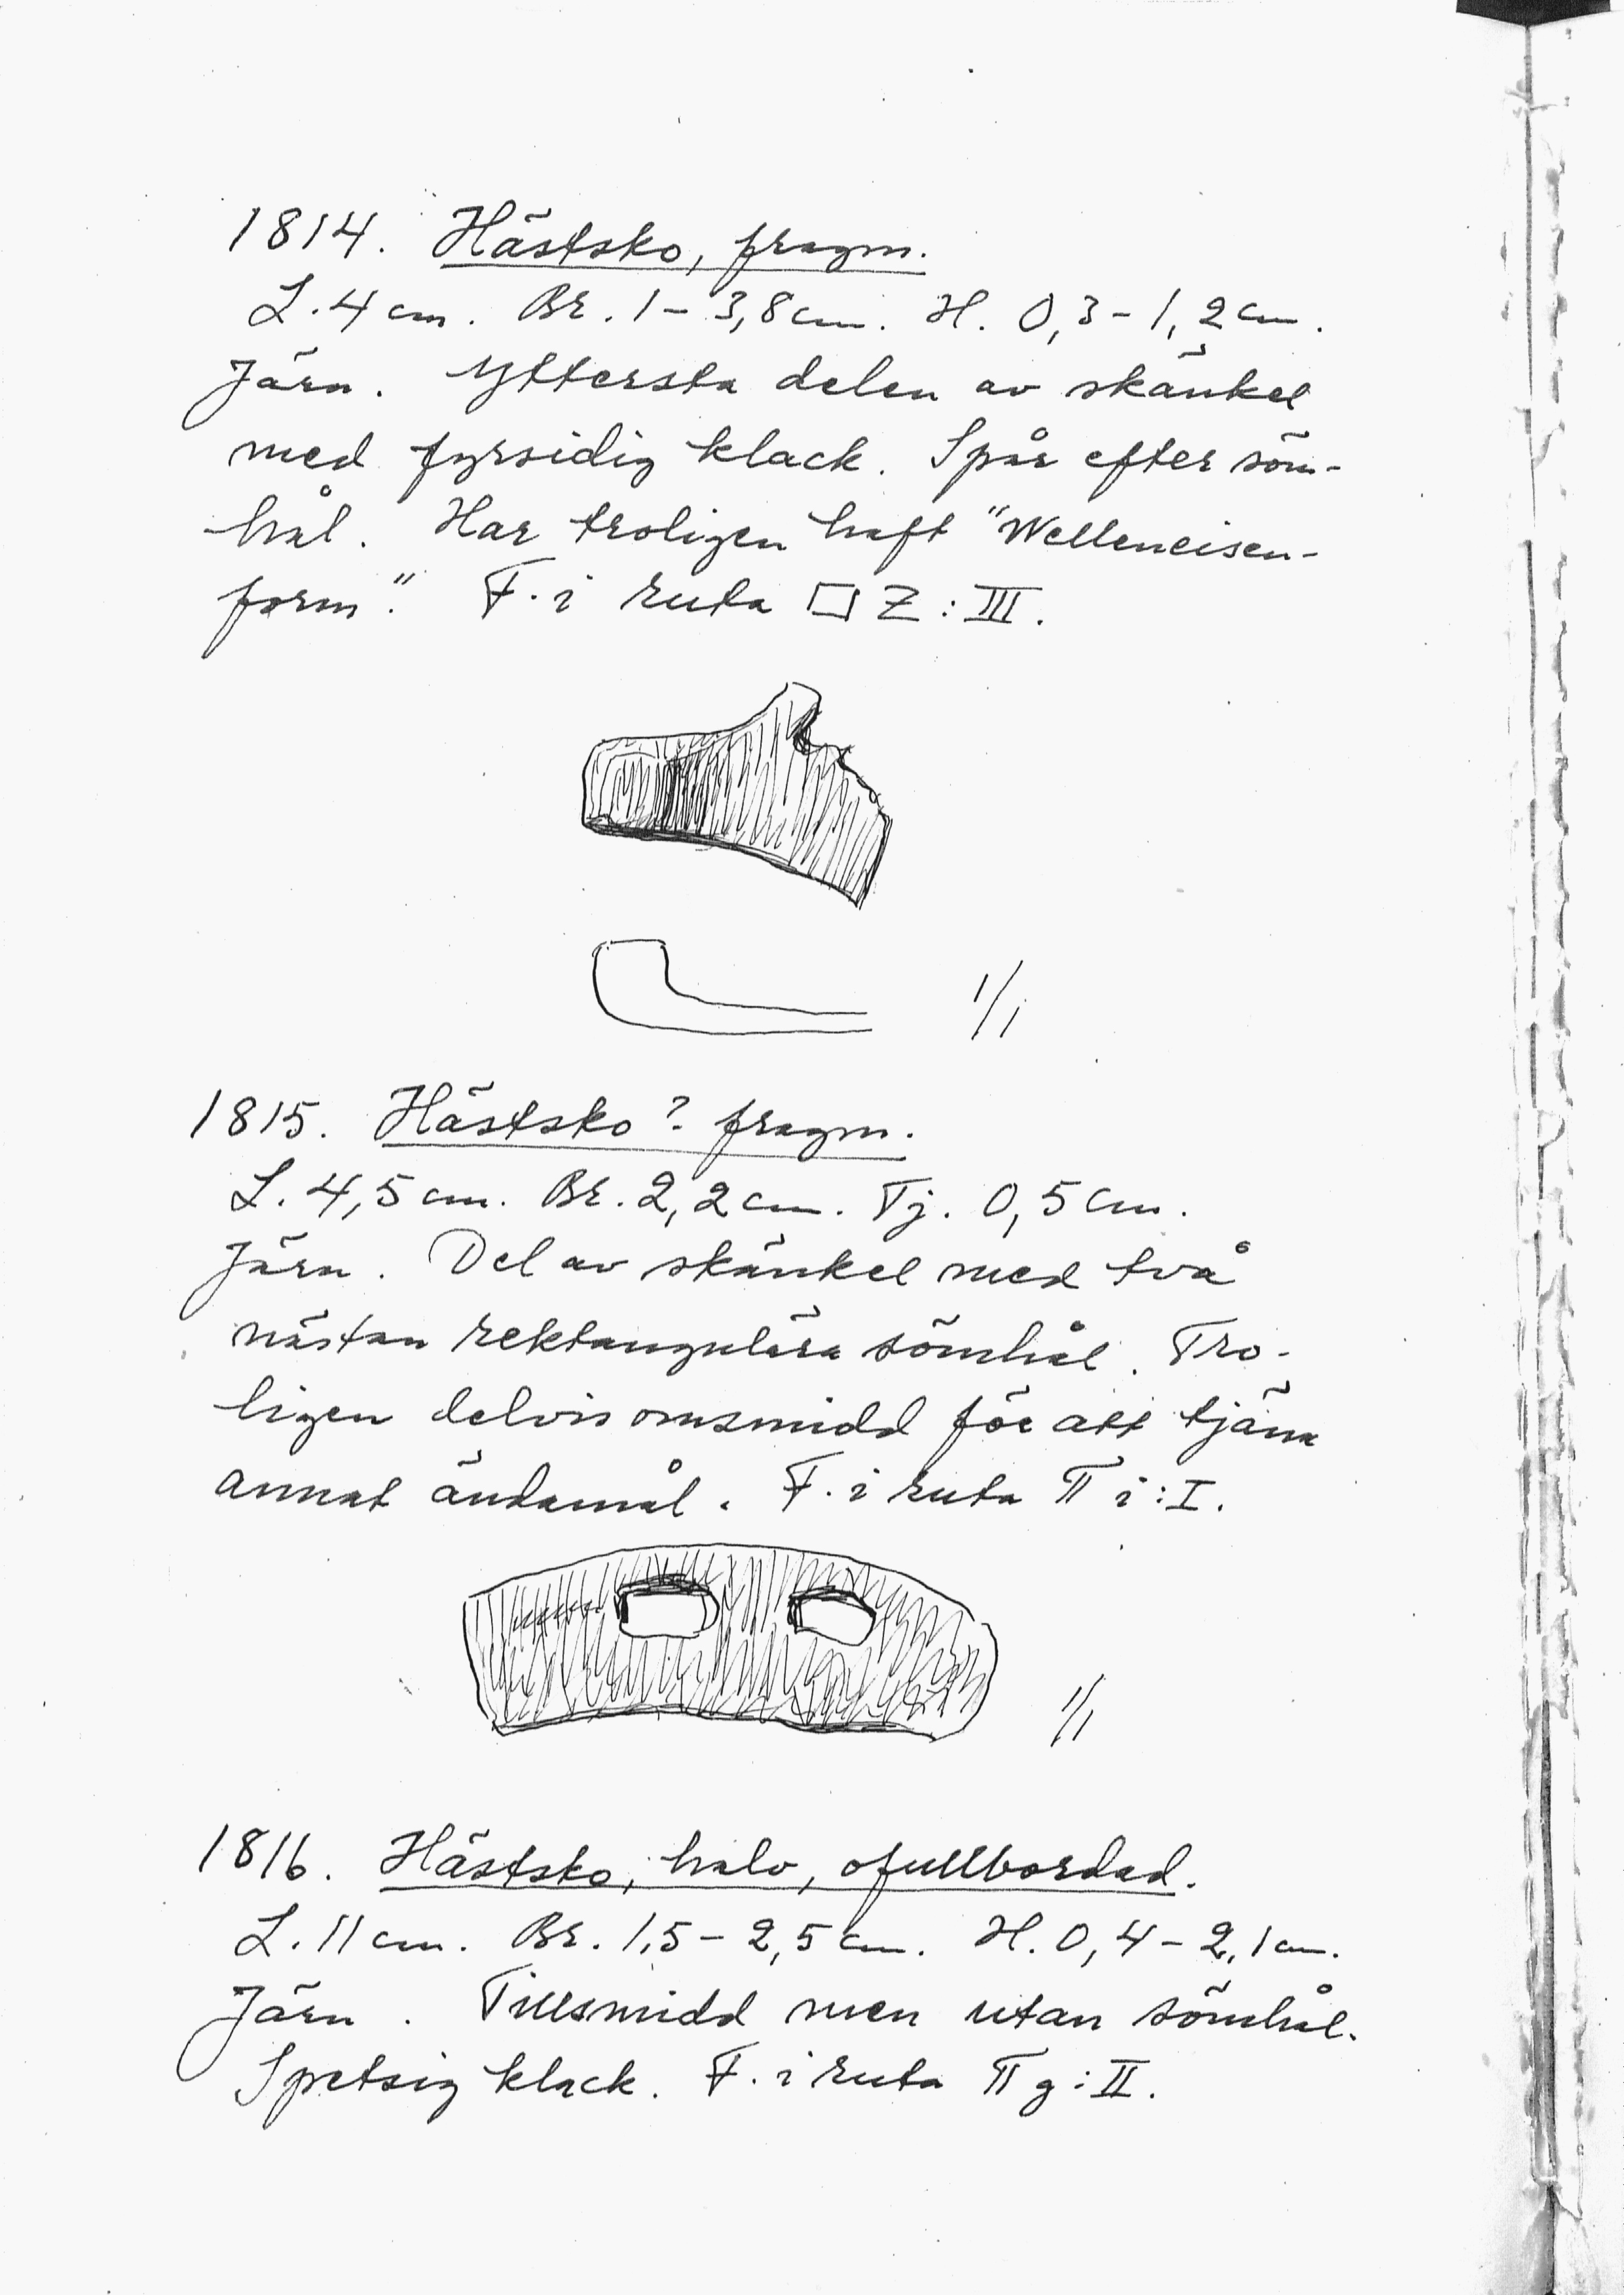 1814. Hästsko, fragm.
L. 4 cm. Br. 1 - 3,8 cm. H. 0,3 - 1,2 cm.
Järn. Yttersta delen av skänkel
med fyrsidig klack. Spår efter söm-
hål. Har troligen haft "Welleneisen-
form". F. i ruta □ Z : III.
1/1
1815. Hästsko? fragm.
L. 4,5 cm. Br. 2,2 cm. Tj. 0,5 cm.
Järn. Del av skänkel med två
nästan rektangulära sömhål. Tro-
ligen delvis omsmidd för att tjäna
annat ändamål. F. i ruta π i : I.
1/1
1816. Hästsko, halv, ofullbordad.
L. 11 cm. Br. 1,5 - 2,5 cm. H. 0,4 - 2,1 cm.
Järn. Tillsmidd men utan sömhål.
Spetsig klack. F. i ruta π g : II.